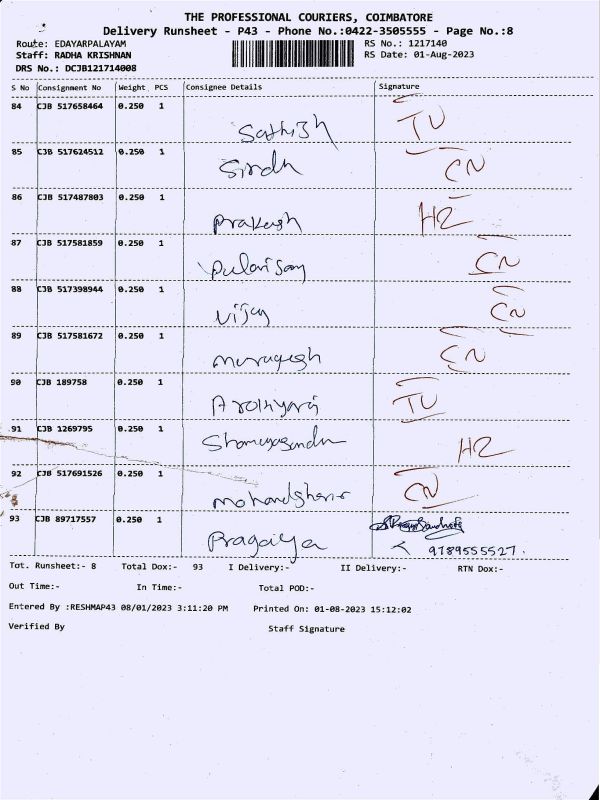 THE PROFESSIONAL COURIERS, COIMBATORE
Delivery Runsheet - P43 - Phone No.:0422-3505555 - Page No.:8
Route: EDAYARPALAYAM RS No.: 1217140
Staff: RADHA KRISHNAN RS Date: 01-Aug-2023
DRS No.: DCJB121714008
S No Consignment No Weight PCS Consignee Details Signature
84 CJB 517658464 0.250 1 Sathish TU
85 CJB 517624512 0.250 1 CN
86 CJB 517487803 0.250 1 Prakash HZ
87 CJB 517581859 0.250 1 CN
88 CJB 517398944 0.250 1 Vijay CN
89 CJB 517581672 0.250 1 Murugesh CN
90 CJB 189758 0.250 1 Arokiyaraj TU
91 CJB 1269795 0.250 1 HZ
92 CJB 517691526 0.250 1 CN
93 CJB 89717557 0.250 1 Pragaiya
9789555527.
Tot. Runsheet:- 8 Total Dox:- 93 I Delivery:- II Delivery:- RTN Dox:-
Out Time:- In Time:- Total POD:-
Entered By :RESHMAP43 08/01/2023 3:11:20 PM Printed On: 01-08-2023 15:12:02
Verified By Staff Signature